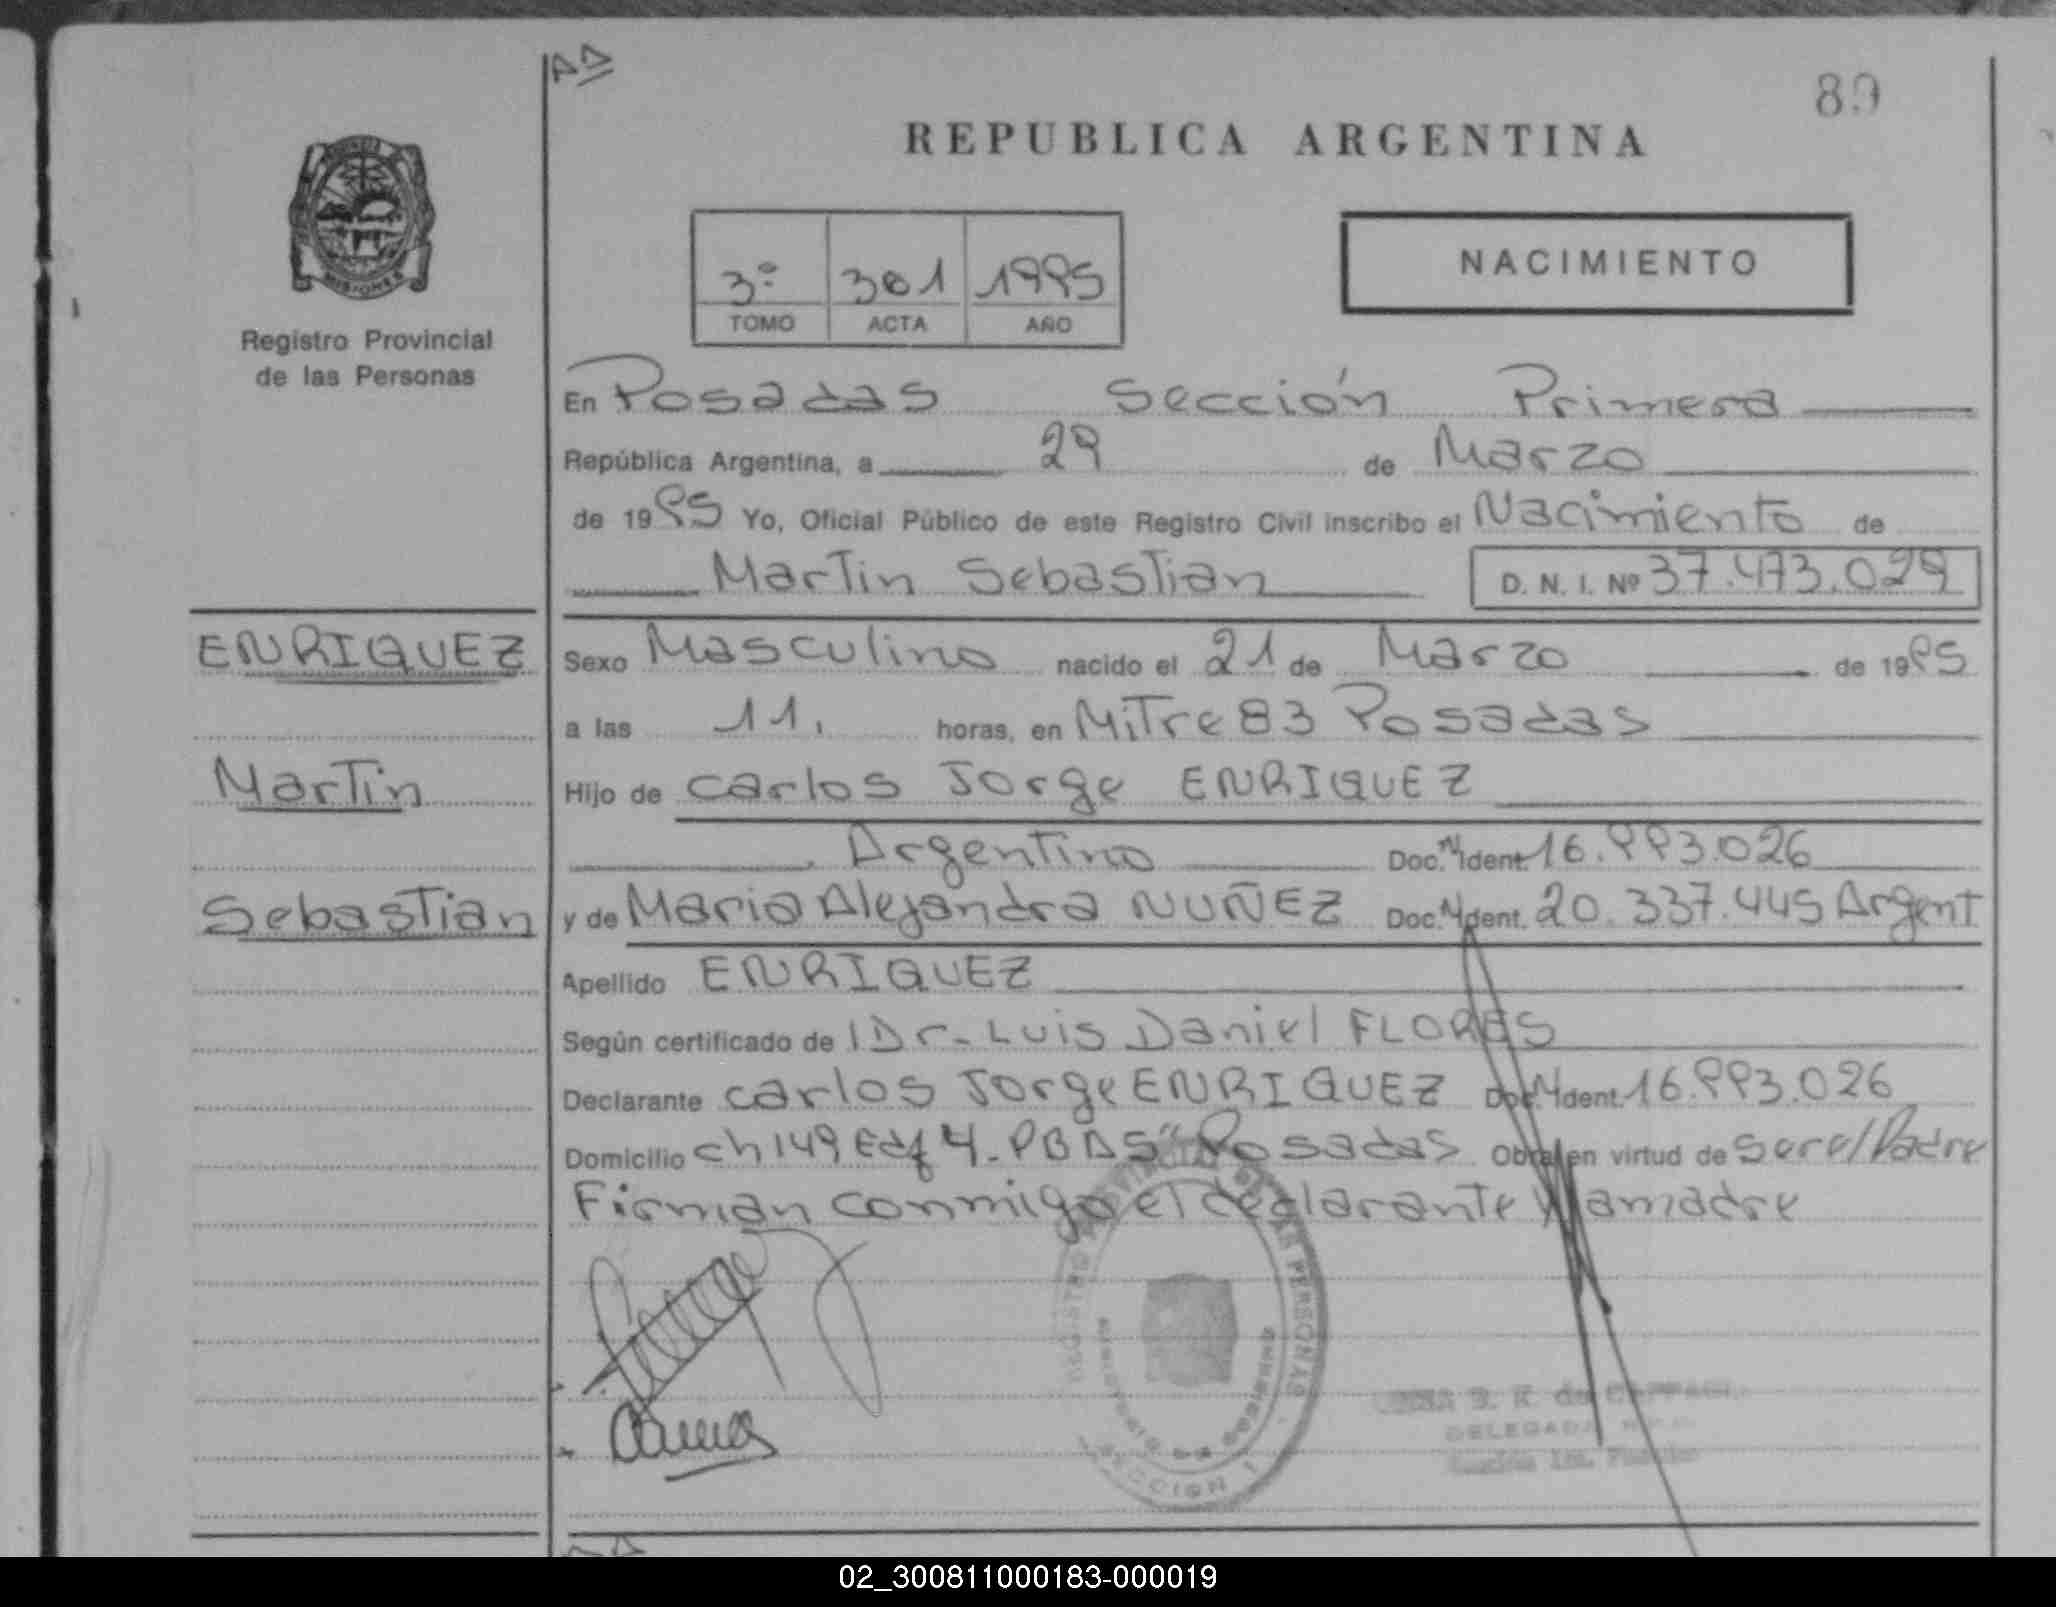 AD
89
REPUBLICA ARGENTINA
MISIONES
Registro Provincial
de las Personas
3º 301 1995
TOMO ACTA AÑO
NACIMIENTO
En Posadas Sección Primera
República Argentina, a 29 de Marzo
de 1995 Yo, Oficial Público de este Registro Civil inscribo el Nacimiento de
Martin Sebastian D. N. I. Nº 37.473.029
ENRIQUEZ
Sexo Masculino nacido el 21 de Marzo de 1995
a las 11, horas, en Mitre 83 Posadas
Martin
Hijo de Carlos Jorge ENRIQUEZ
Argentino Doc. N Ident. 16.993.026
Sebastian
y de Maria Alejandra NUÑEZ Doc. N Ident. 20.337.445 Argent
Apellido ENRIQUEZ
Según certificado de l Dr. Luis Daniel FLORES
Declarante Carlos Jorge ENRIQUEZ Doc. N Ident. 16.993.026
Domicilio ch 149 Edf 4 - PB Posadas Obra en virtud de ser el Padre
Firman conmigo el declarante y la madre
REGISTRO PROVINCIAL DE LAS PERSONAS
MINISTERIO DE GOBIERNO
SECCION 1
DELEGADA
Sección 1ra.
02_300811000183-000019